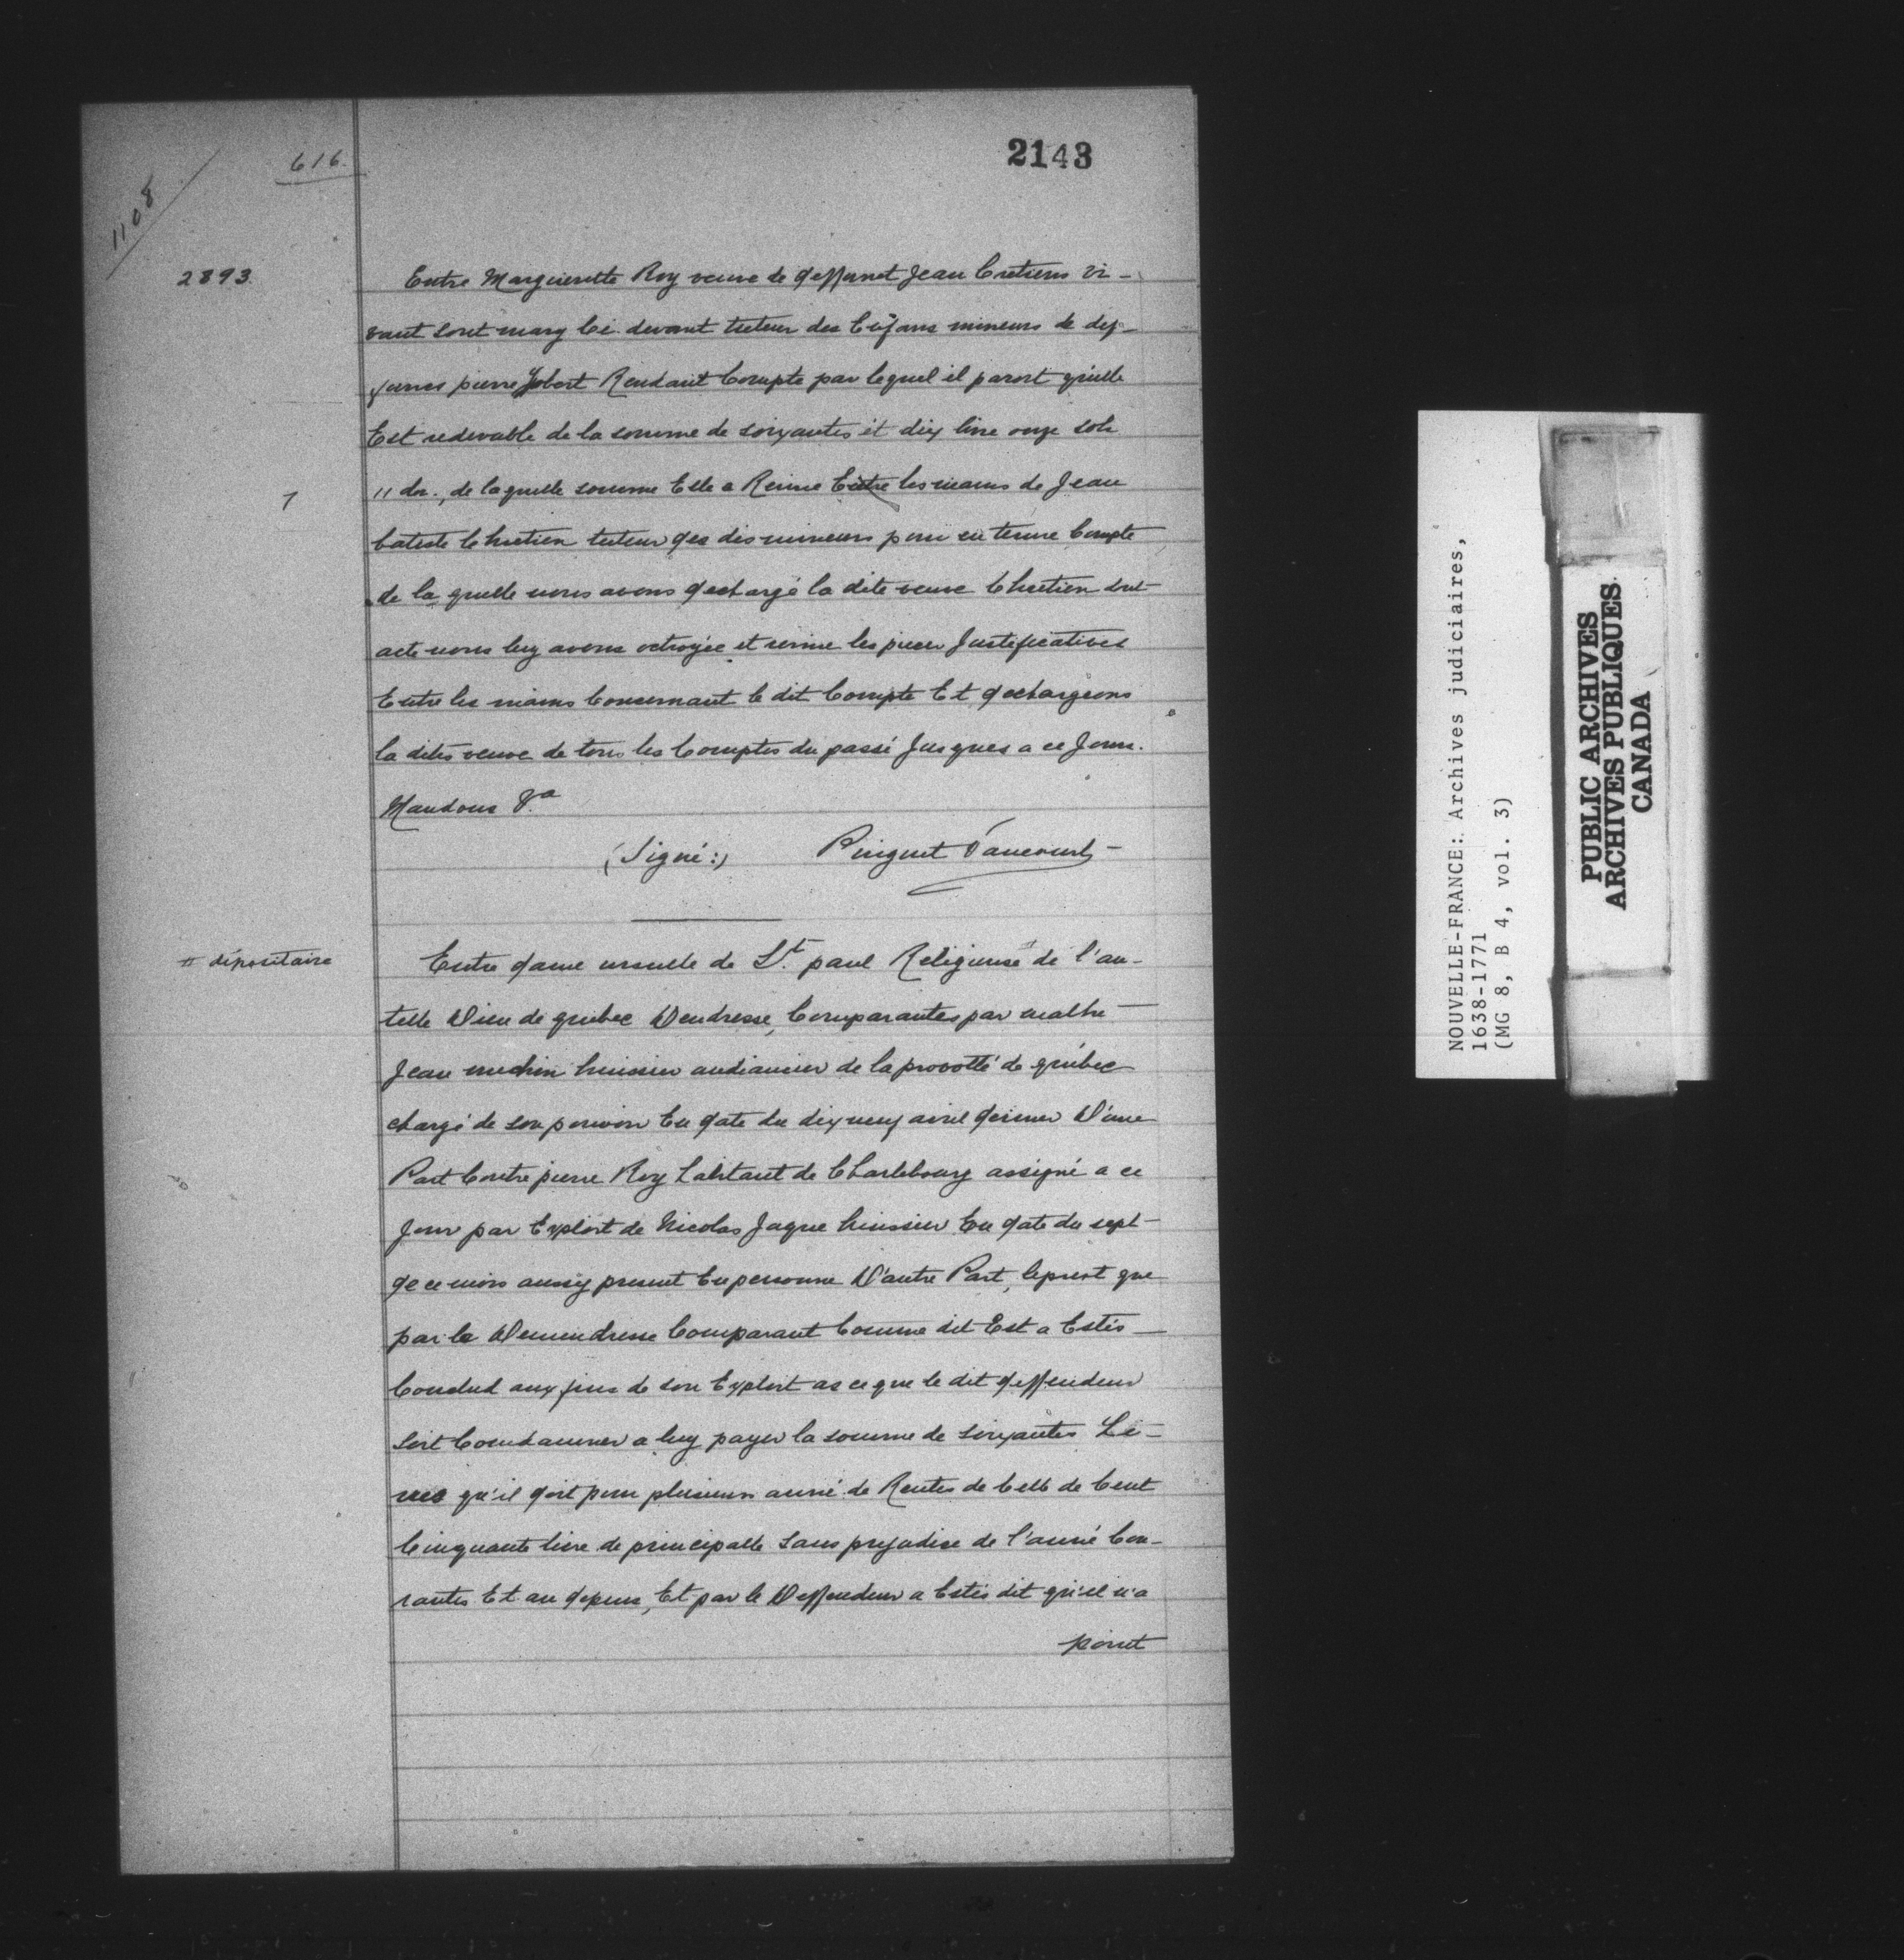 616.
2143
1108
2893.
Entre Marguerette Roy veuve de deffunct Jean Cretiens vi-
vant sont mary Ci devant tuteur des Enfans mineurs de def-
funcs pierre Jobert Rendant Compte par lequel il paroit qu'elle
Est redevable de la somme de soixantes et dix livre onze sols
11 dn., de laquelle somme Elle a Remise Entre les mains de Jean
1
batiste Chretien tuteur des dis mineurs pour en tenire Compte
de la quelle nous avons dechargé la dite veuve Chretien dont
acte nous luy avons octroyée et remise les pieces Justeficatives
Entre les mains Concernant le dit Compte Et dechargeons
la dites veuve de tous les Comptes du passé Jusques a ce Jour.
Mandons &a
(Signé:) Pinguet Vaucourt
# dépositaire
Entre dame ursulle de St. paul Religieuse # de l'au-
telle Dieu de quebec Dendresse, Comparantes par maître
Jean huissier audiancier de la provotté de québec
chargé de son pouvoir En date du dix neuf avril dernier D'une
Part Contre pierre Roy habitant de Charlebourg assigné a ce
Jour par Exploit de Nicolas Jaque huissier En date du sept
de ce mois aussy present En personne D'autre Part, que
par la Demendresse Comparant Comme dit Est a Estés
Conclud aux fins de son Exploit as ce que le dit deffendeur
soit Condamner a luy payer la somme de soixantes Li-
vres qu'il doit pour plusieurs anné de Rentes de Celle de Cent
Cinquante livre de principalle sans prejudice de l'anné Cou-
rantes Et au depens, Et par le Deffendeur a Estés dit qu'il n'a
point
NOUVELLE-FRANCE: Archives judiciaires,
1638-1771
(MG 8, B 4, vol. 3)
PUBLIC ARCHIVES
ARCHIVES PUBLIQUES
CANADA